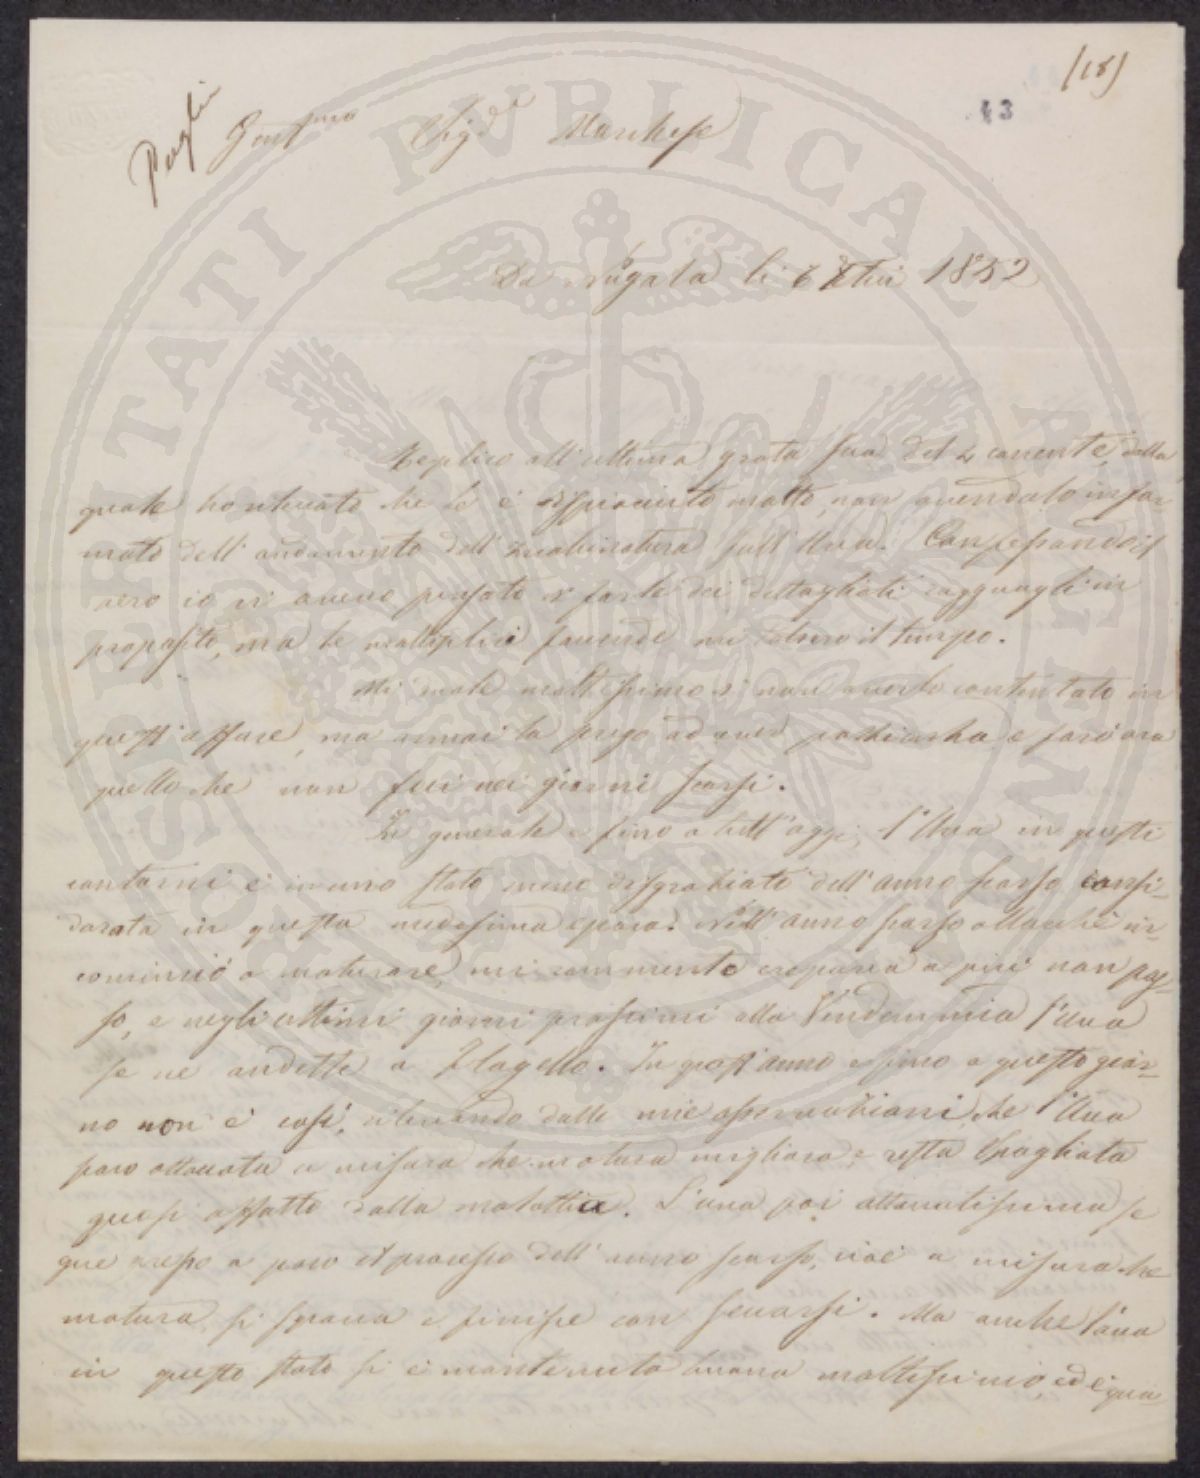 (18)
43
Puglii
Gent.mo Sig.r Marchese
Da Nugola li 6 7bre 1852
Replico all'ultima grata sua del 4 corrente, dalla
quale ho rilevato che le è dispiaciuto molto, non avendolo infor-
mato dell'andamento dell' sull'Uva. Confessandoil
vero io ci avevo pensato di farle dei dettagliati ragguagli in
proposito, ma le moltiplici faccende mi tolsero il tempo.
Mi duole moltissimo di non averlo contentato in
quest'affare, ma ormai la prego ad aver pazienza e farò ora
quello che non feci nei giorni scorsi.
In generale e fino a tutt'oggi, l'Uva in questi
contorni è in uno stato meno disgraziato dell'anno scorso consi-
derata in questa medesima epoca. Nell'anno scorso allorchè in-
cominciò a maturare, crepava a più non pos-
so, e negli ultimi giorni prossimi alla Vendemmia l'Uva
se ne andette a flagello. In quest'anno e fino a questo gior-
no non è così, rilevando dalle mie osservazioni che l'Uva
poco attaccata a misura che matura migliora, e resta spogliata
quasi affatto dalla malattia. L'uva poi attaccatissima se
gue presso a poco il processo dell'anno scorso, cioè a misura che
matura si spacca e finisce con seccarsi. Ma anche l'uva
in questo stato si è mantenuta buona moltissimo, ed è qua-